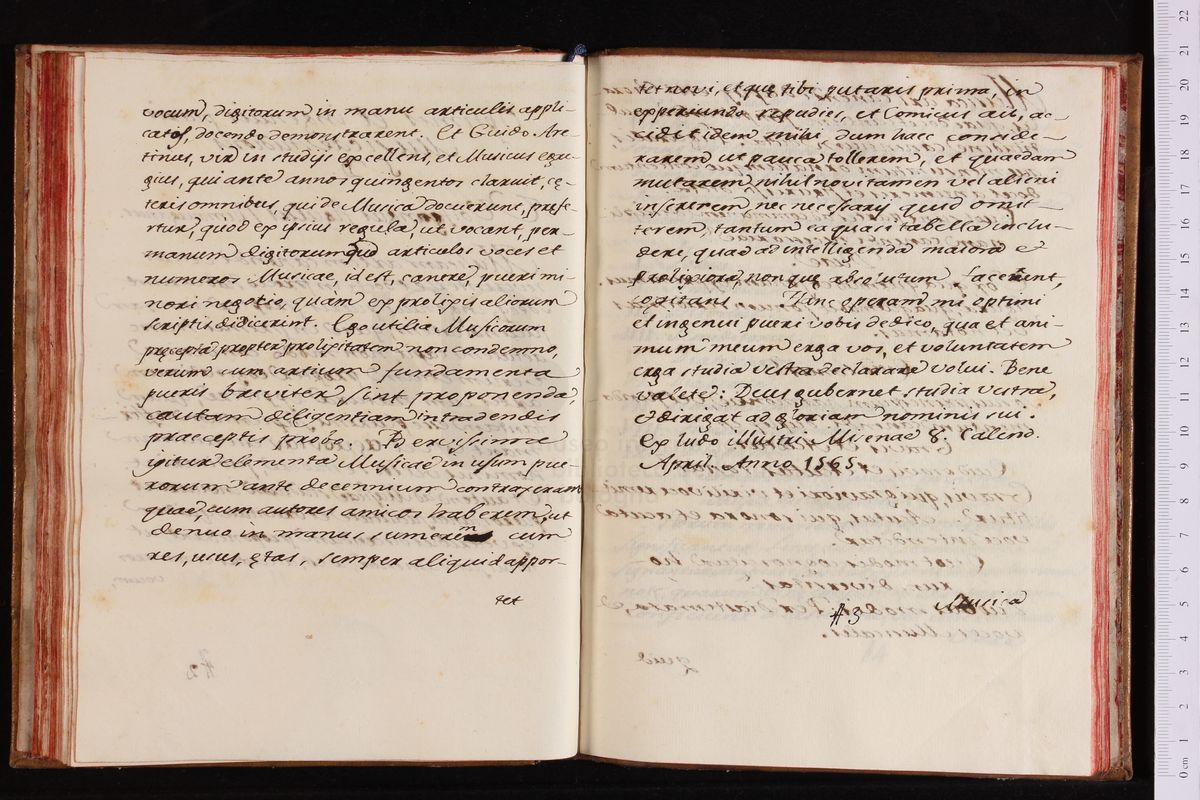 vocum, digitorum in manu articulis appli-
catos, docendo demonstrarent. Et Guido Are-
tinus, vir in studijs excellens, et Musicus egre-
gius, qui ante annos quingentos claruit, cę-
teris omnibus, qui de Musica docuerunt, prefe-
rtur, quod ex ipsius regula, ut vocant, per
manum digitorumque articulos voces et
numeros Musicae, id est, canere pueri mi-
nori negotio, quam ex prolixis aliorum
scriptis didicerint. Ego utilia Musicorum
pręcepta propter prolixitatem non condemno,
verum cum artium fundamenta
pueris breviter sint proponenda
cautam diligentiam in tradendis
praeceptis probo. Brevissime
igitur elementa Musicae in usum pue-
rorum ante decennium contraxeram
quae, cum autores amicos haberem, ut
denuo in manus sumerem cum
res, usus, ętas, semper aliquid appor-
tet
tet novi, et quę tibi putaris prima, in
experiundo repudies, ut Comicus ait, ac-
cidit idem mihi dum haec conside-
rarem ut pauca tollerem, et quaedam
mutarem nihil novi tamen vel alieni
insererem nec necessarij quid omit-
terem, tantum ea quasi tabella inclu-
dere, quae ad intelligenda maiora et
prolixiora, non que absolutum facerent,
cogitans Hinc operam mi optimi
et ingenui pueri vobis dedico, qua et ani-
mum meum erga vos, et voluntatem
erga studia vestra declarare volui. Bene
valete. Deus gubernet studia vestra,
et dirigat ad gloriam nominis sui.
Ex ludo Illustri Misenae 8. Calend.
April. Anno 1565.
A 3 Musica
0 cm 1 2 3 4 5 6 7 8 9 10 11 12 13 14 15 16 17 18 19 20 21 22